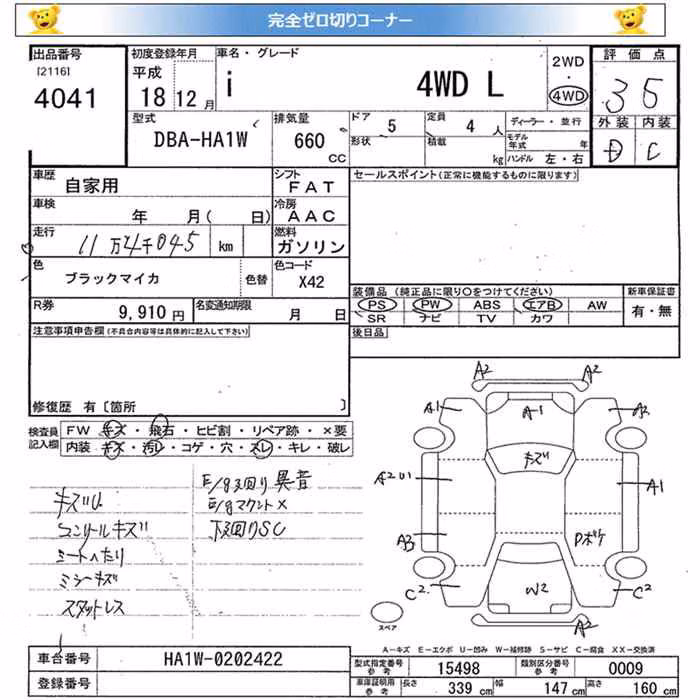 完全ゼロ切りコーナー
出品番号 初度登録年月 車名・グレード 2WD 評価点
[2116] 平成 i 4WD L ・
4041 18 12月 4WD 35
型式 排気量 ドア 5 定員 4 人 ディーラー・並行 外装 内装
DBA-HA1W 660 CC 形状 積載 kg モデル年式 年 D C
ハンドル 左・右
車歴 自家用 シフト FAT セールスポイント(正常に機能するものに限ります)
車検 年 月( 日) 冷房 AAC
走行 11万4千045 km 燃料 ガソリン
色 ブラックマイカ 色替 色コード X42
装備品(純正品に限り○をつけてください) 新車保証書
R券 9,910円 名変通知期限 月 日 PS PW ABS エアB AW 有・無
SR ナビ TV カワ
注意事項申告欄(不具合内容等は具体的に記入して下さい) 後日品
修復歴 有[箇所 ]
検査員 FW キズ・飛石・ヒビ割・リペア跡・×要
記入欄 内装 キズ・汚レ・コゲ・穴・スレ・キレ・破レ
A2 A2
A1 A1 A2
キズ
A2 A1
A3 Pボケ
C2 W2 C2
A2
E/g回り異音
E/gマウント×
下回りSC
キズU
コンソールキズ
シートヘたり
ミラーキズ
スタットレス
スペア
A-キズ E-エクボ U-凹み W-補修跡 S-サビ C-腐食 XX-交換済
車台番号 HA1W-0202422 型式指定番号 参考 15498 類別区分番号 参考 0009
登録番号 車庫証明用 参考 長さ 339 cm 幅 147 cm 高さ 160 cm